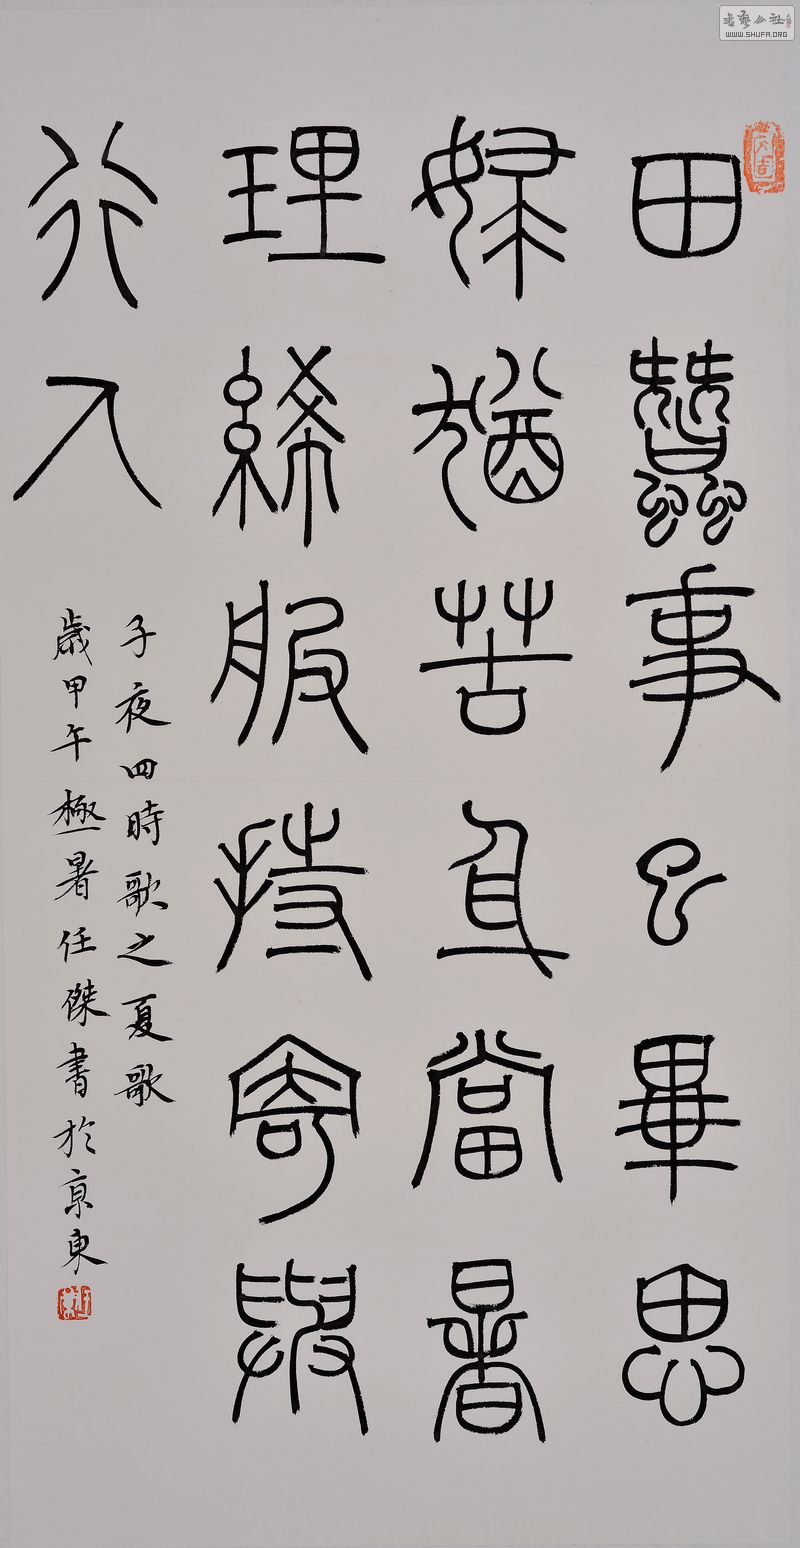 田蠶事已畢思
婦猶苦身當暑
理絺服持寄與
行人
子夜四時歌之夏歌
歲甲午極暑任傑書於京東
大吉
書藝公社
WWW.SHUFA.ORG